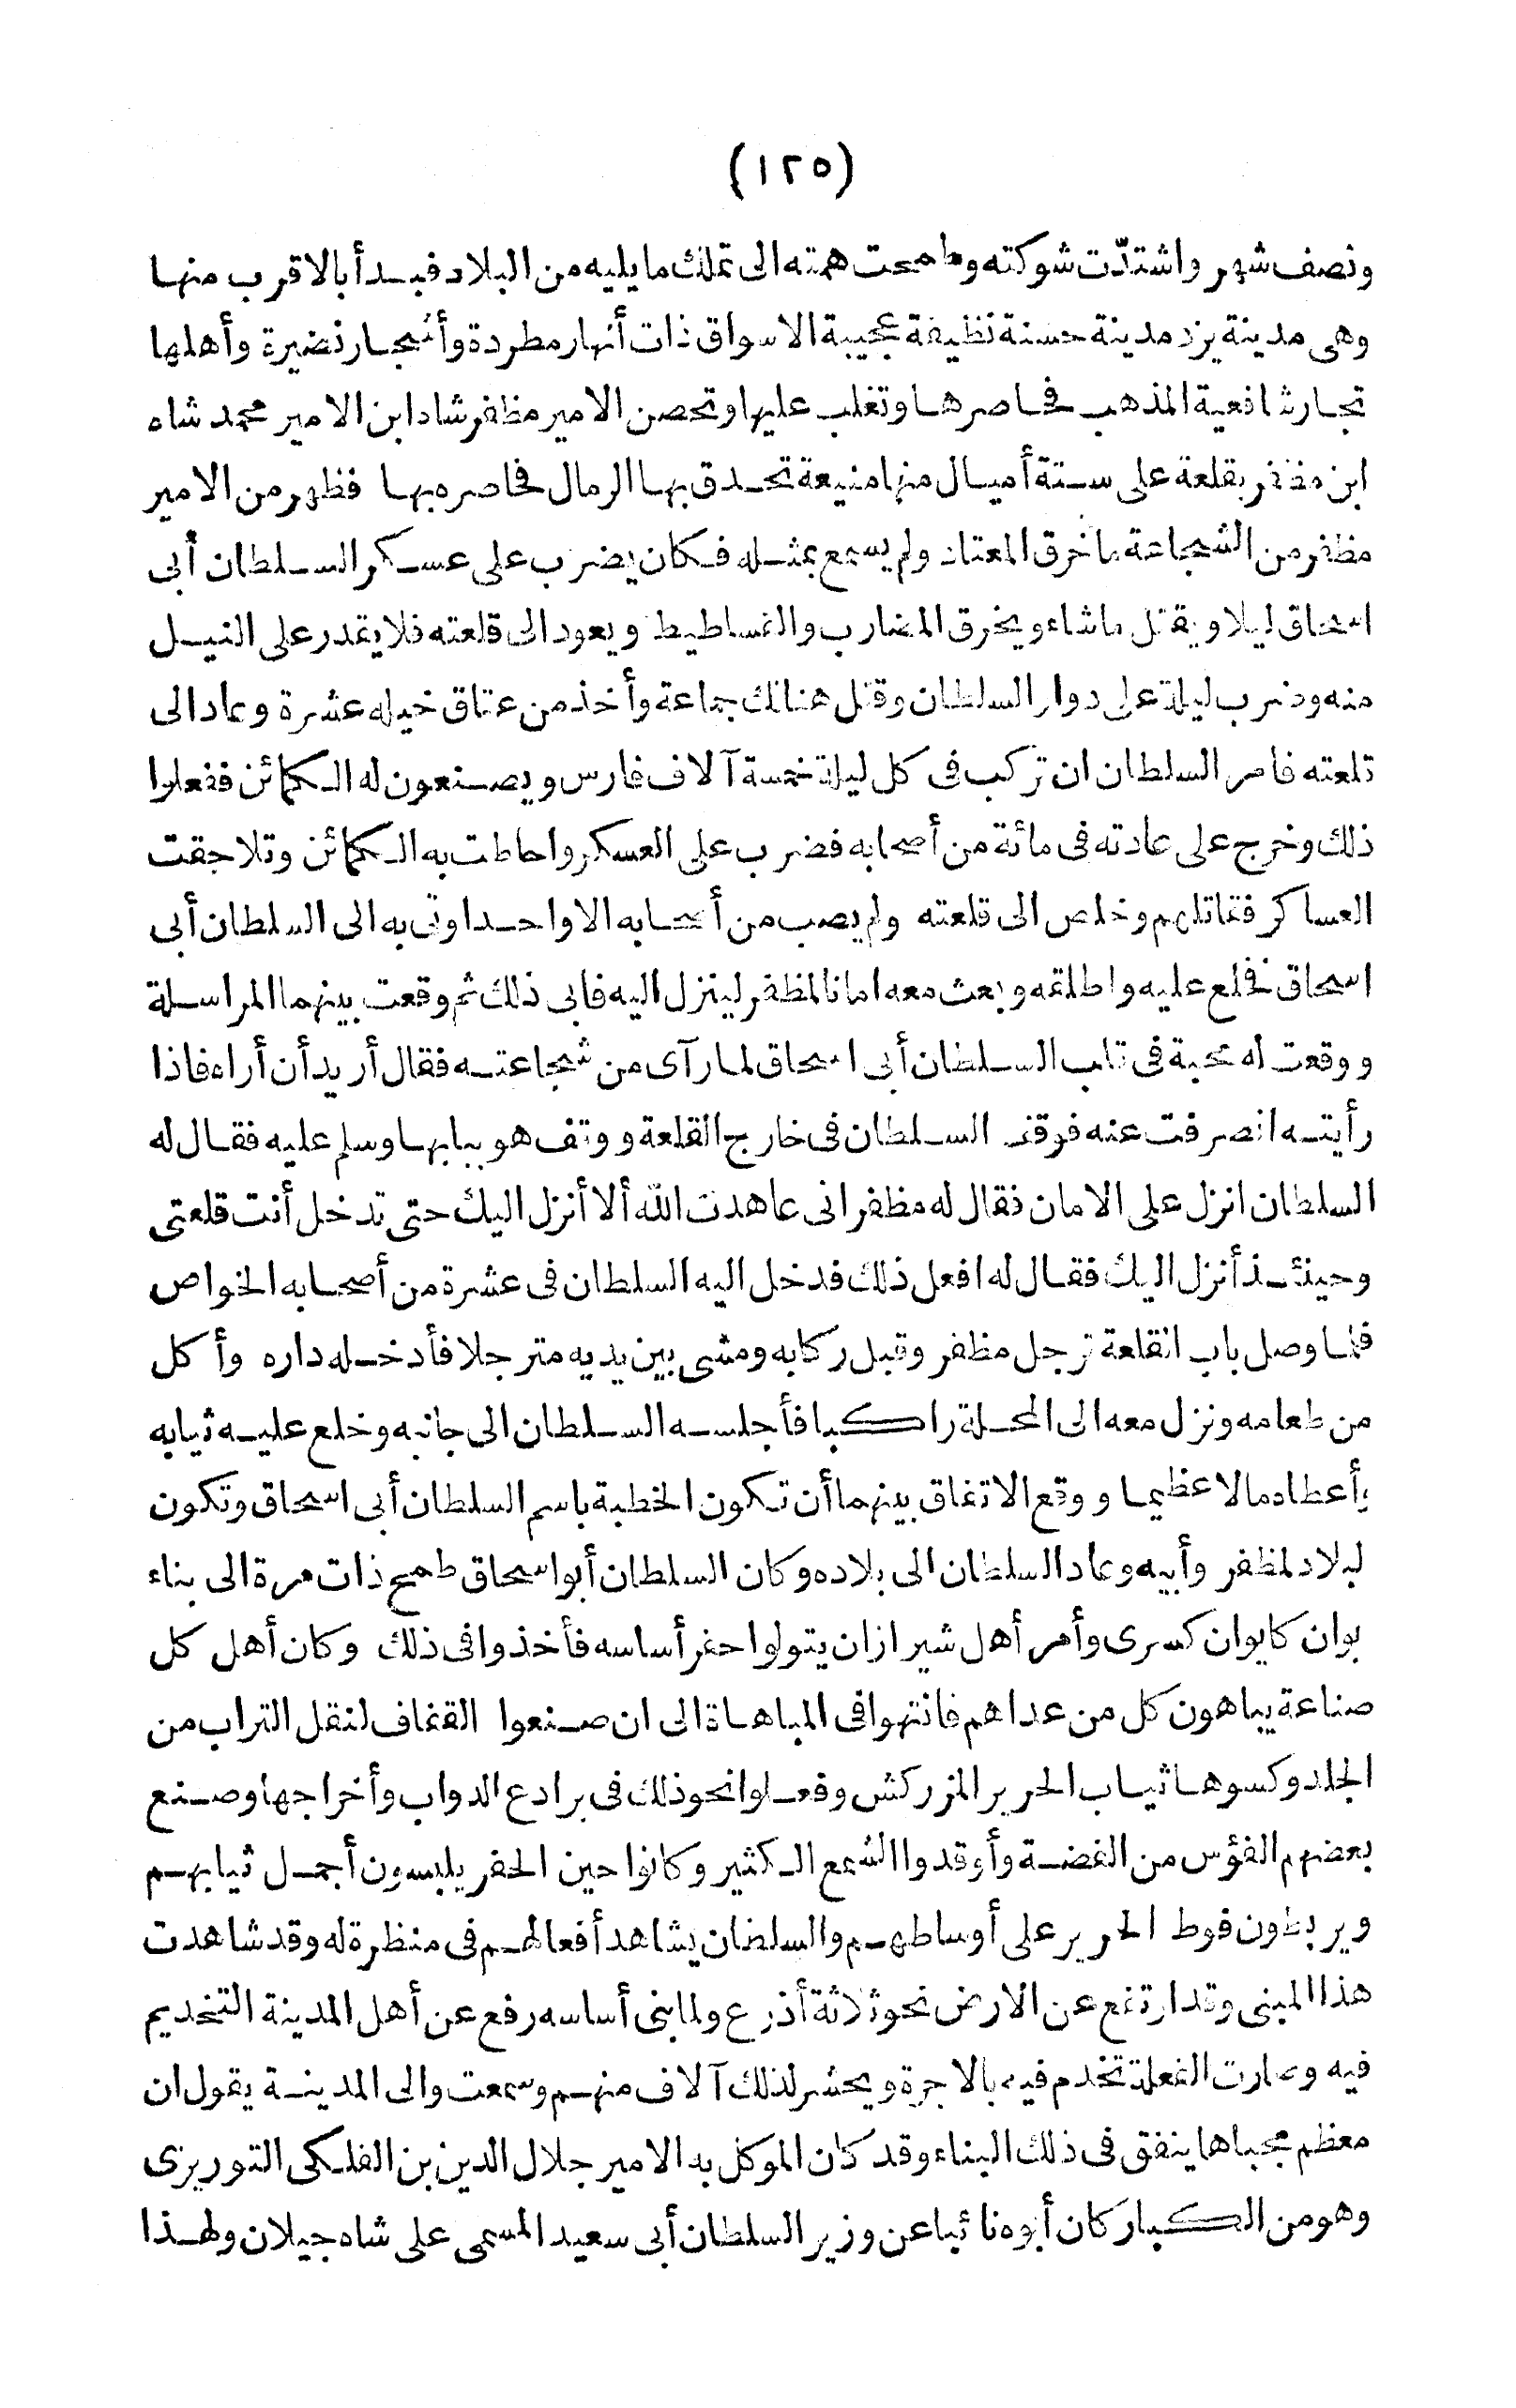 (١٢٥)
ونصف شهر واشتدّت شوكته وطمحت همته الى تملك ما يليه من البلاد فبدأ بالاقرب منها
وهى مدينة يزد مدينة حسنة نظيفة عجيبة الاسواق ذات أنهار مطردة وأشجار نضيرة وأهلها
تجار شافعية المذهب فحاصرها وتغلب عليها وتحصن الامير مظفر شاه ابن الامير محمد شاه
ابن مظفر بقلعة على ستة أميال منها منيعة تحدق بها الرمال فحاصره بها فظهر من الامير
مظفر من الشجاعة ما خرق المعتاد ولم يسمع بمثله فكان يضرب على عسكر السلطان أبى
اسحاق ليلا ويقتل ما شاء ويخرق المضارب والفساطيط ويعود الى قلعته فلا يقدر على النيل
منه وضرب ليلة على دوار السلطان وقتل هنالك جماعة وأخذ من عتاق خيله عشرة وعاد الى
قلعته فامر السلطان ان تركب فى كل ليلة خمسة آلاف فارس ويصنعون له الكمائن ففعلوا
ذلك وخرج على عادته فى مائة من أصحابه فضرب على العسكر واحاطت به الكمائن وتلاحقت
العساكر فقاتلهم وخلص الى قلعته ولم يصب من أصحابه الا واحد اوتى به الى السلطان أبى
اسحاق فخلع عليه واطلقه وبعث معه امانا لمظفر لينزل اليه فابى ذلك ثم وقعت بينهما المراسلة
ووقعت له محبة فى قلب السلطان أبى اسحاق لما رآى من شجاعته فقال أريد أن أراه فاذا
رأيته انصرفت عنه فوقف السلطان فى خارج القلعة ووقف هو ببابها وسلم عليه فقال له
السلطان انزل على الامان فقال له مظفر انى عاهدت الله ألا أنزل اليك حتى تدخل أنت قلعتى
وحينئذ أنزل اليك فقال له افعل ذلك فدخل اليه السلطان فى عشرة من أصحابه الخواص
فلما وصل باب القلعة ترجل مظفر وقبل ركابه ومشى بين يديه مترجلا فأدخله داره وأكل
من طعامه ونزل معه الى المحلة راكبا فأجلسه السلطان الى جانبه وخلع عليه ثيابه
وأعطاه مالا عظيما ووقع الاتفاق بينهما أن تكون الخطبة باسم السلطان أبى اسحاق وتكون
لبلاد لمظفر وأبيه وعاد السلطان الى بلاده وكان السلطان أبو اسحاق طمح ذات مرة الى بناء
يوان كايوان كسرى وأمر أهل شيراز ان يتولوا حفر أساسه فأخذوا فى ذلك وكان أهل كل
صناعة يباهون كل من عداهم فانتهوا فى المباهاة الى ان صنعوا القفاف لنقل التراب من
الجلد وكسوها ثياب الحرير المزركش وفعلوا نحو ذلك فى برادع الدواب وأخراجها وصنع
بعضهم الفؤس من الفضة وأوقدوا الشمع الكثير وكانوا حين الحفر يلبسون أجمل ثيابهم
ويربطون فوط الحرير على أوساطهم والسلطان يشاهد أفعالهم فى منظرة له وقد شاهدت
هذا المبنى وقد ارتفع عن الارض نحو ثلاثة أذرع ولما بنى أساسه رفع عن أهل المدينة التخديم
فيه وصارت الفعلة تخدم فيه بالاجرة ويحشر لذلك آلاف منهم وسمعت والى المدينة يقول ان
معظم مجباها ينفق فى ذلك البناء وقد كان الموكل به الامير جلال الدين بن الفلكى التوريزى
وهو من الكبار كان أبوه نائبا عن وزير السلطان أبى سعيد المسمى على شاه جيلان ولهذا